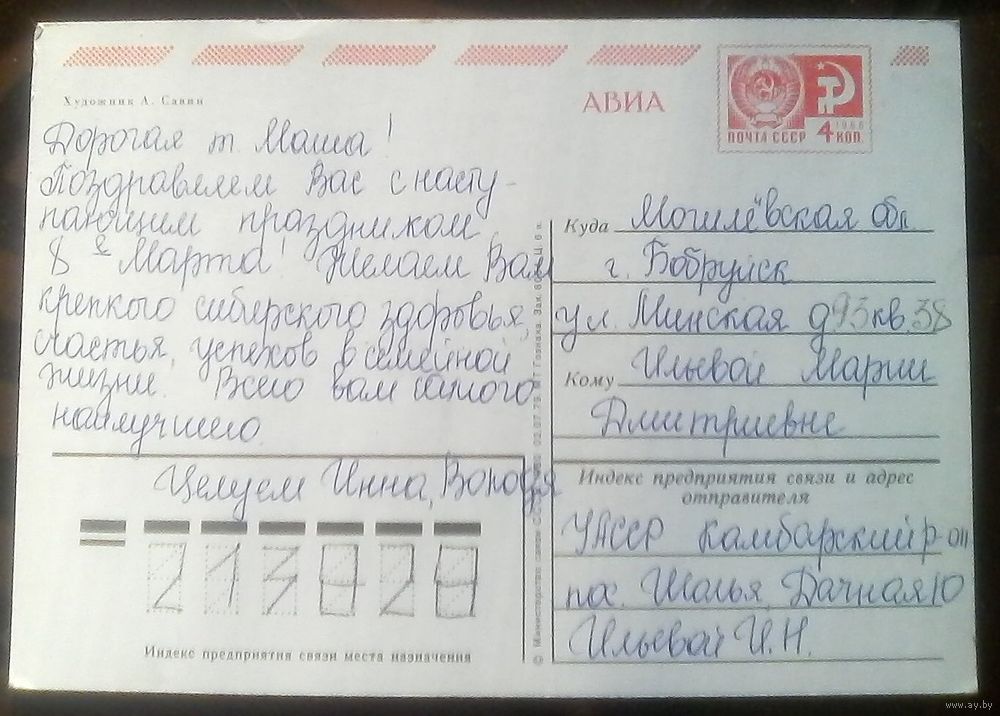 Художник А. Савин
АВИА
ПОЧТА СССР 4 КОП.
1966
Дорогая т. Маша!
Поздравляем Вас с насту-
пающим праздником
8 е Марта! Желаем Вам
крепкого сибирского здоровья,
счастья, успехов в семейной
жизни. Всего вам самого
наилучшего.
Целуем Инна, Володя
Куда Могилёвская обл.
г. Бобруйск
ул. Минская д 93 кв. 38
Кому Ильевой Марии
Дмитриевне
Индекс предприятия связи и адрес
отправителя
УАССР Камбарский р-он
пос. Шолья, Дачная 10
Ильевой И.Н.
213828
Индекс предприятия связи места назначения
© Министерство связи
Гознака. Зак.
www.ay.by